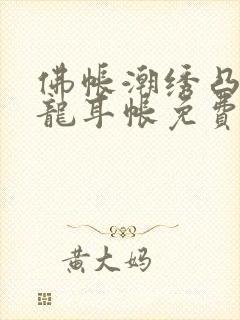 佛帐潮绣凸
龍耳帐免費
黄大妈